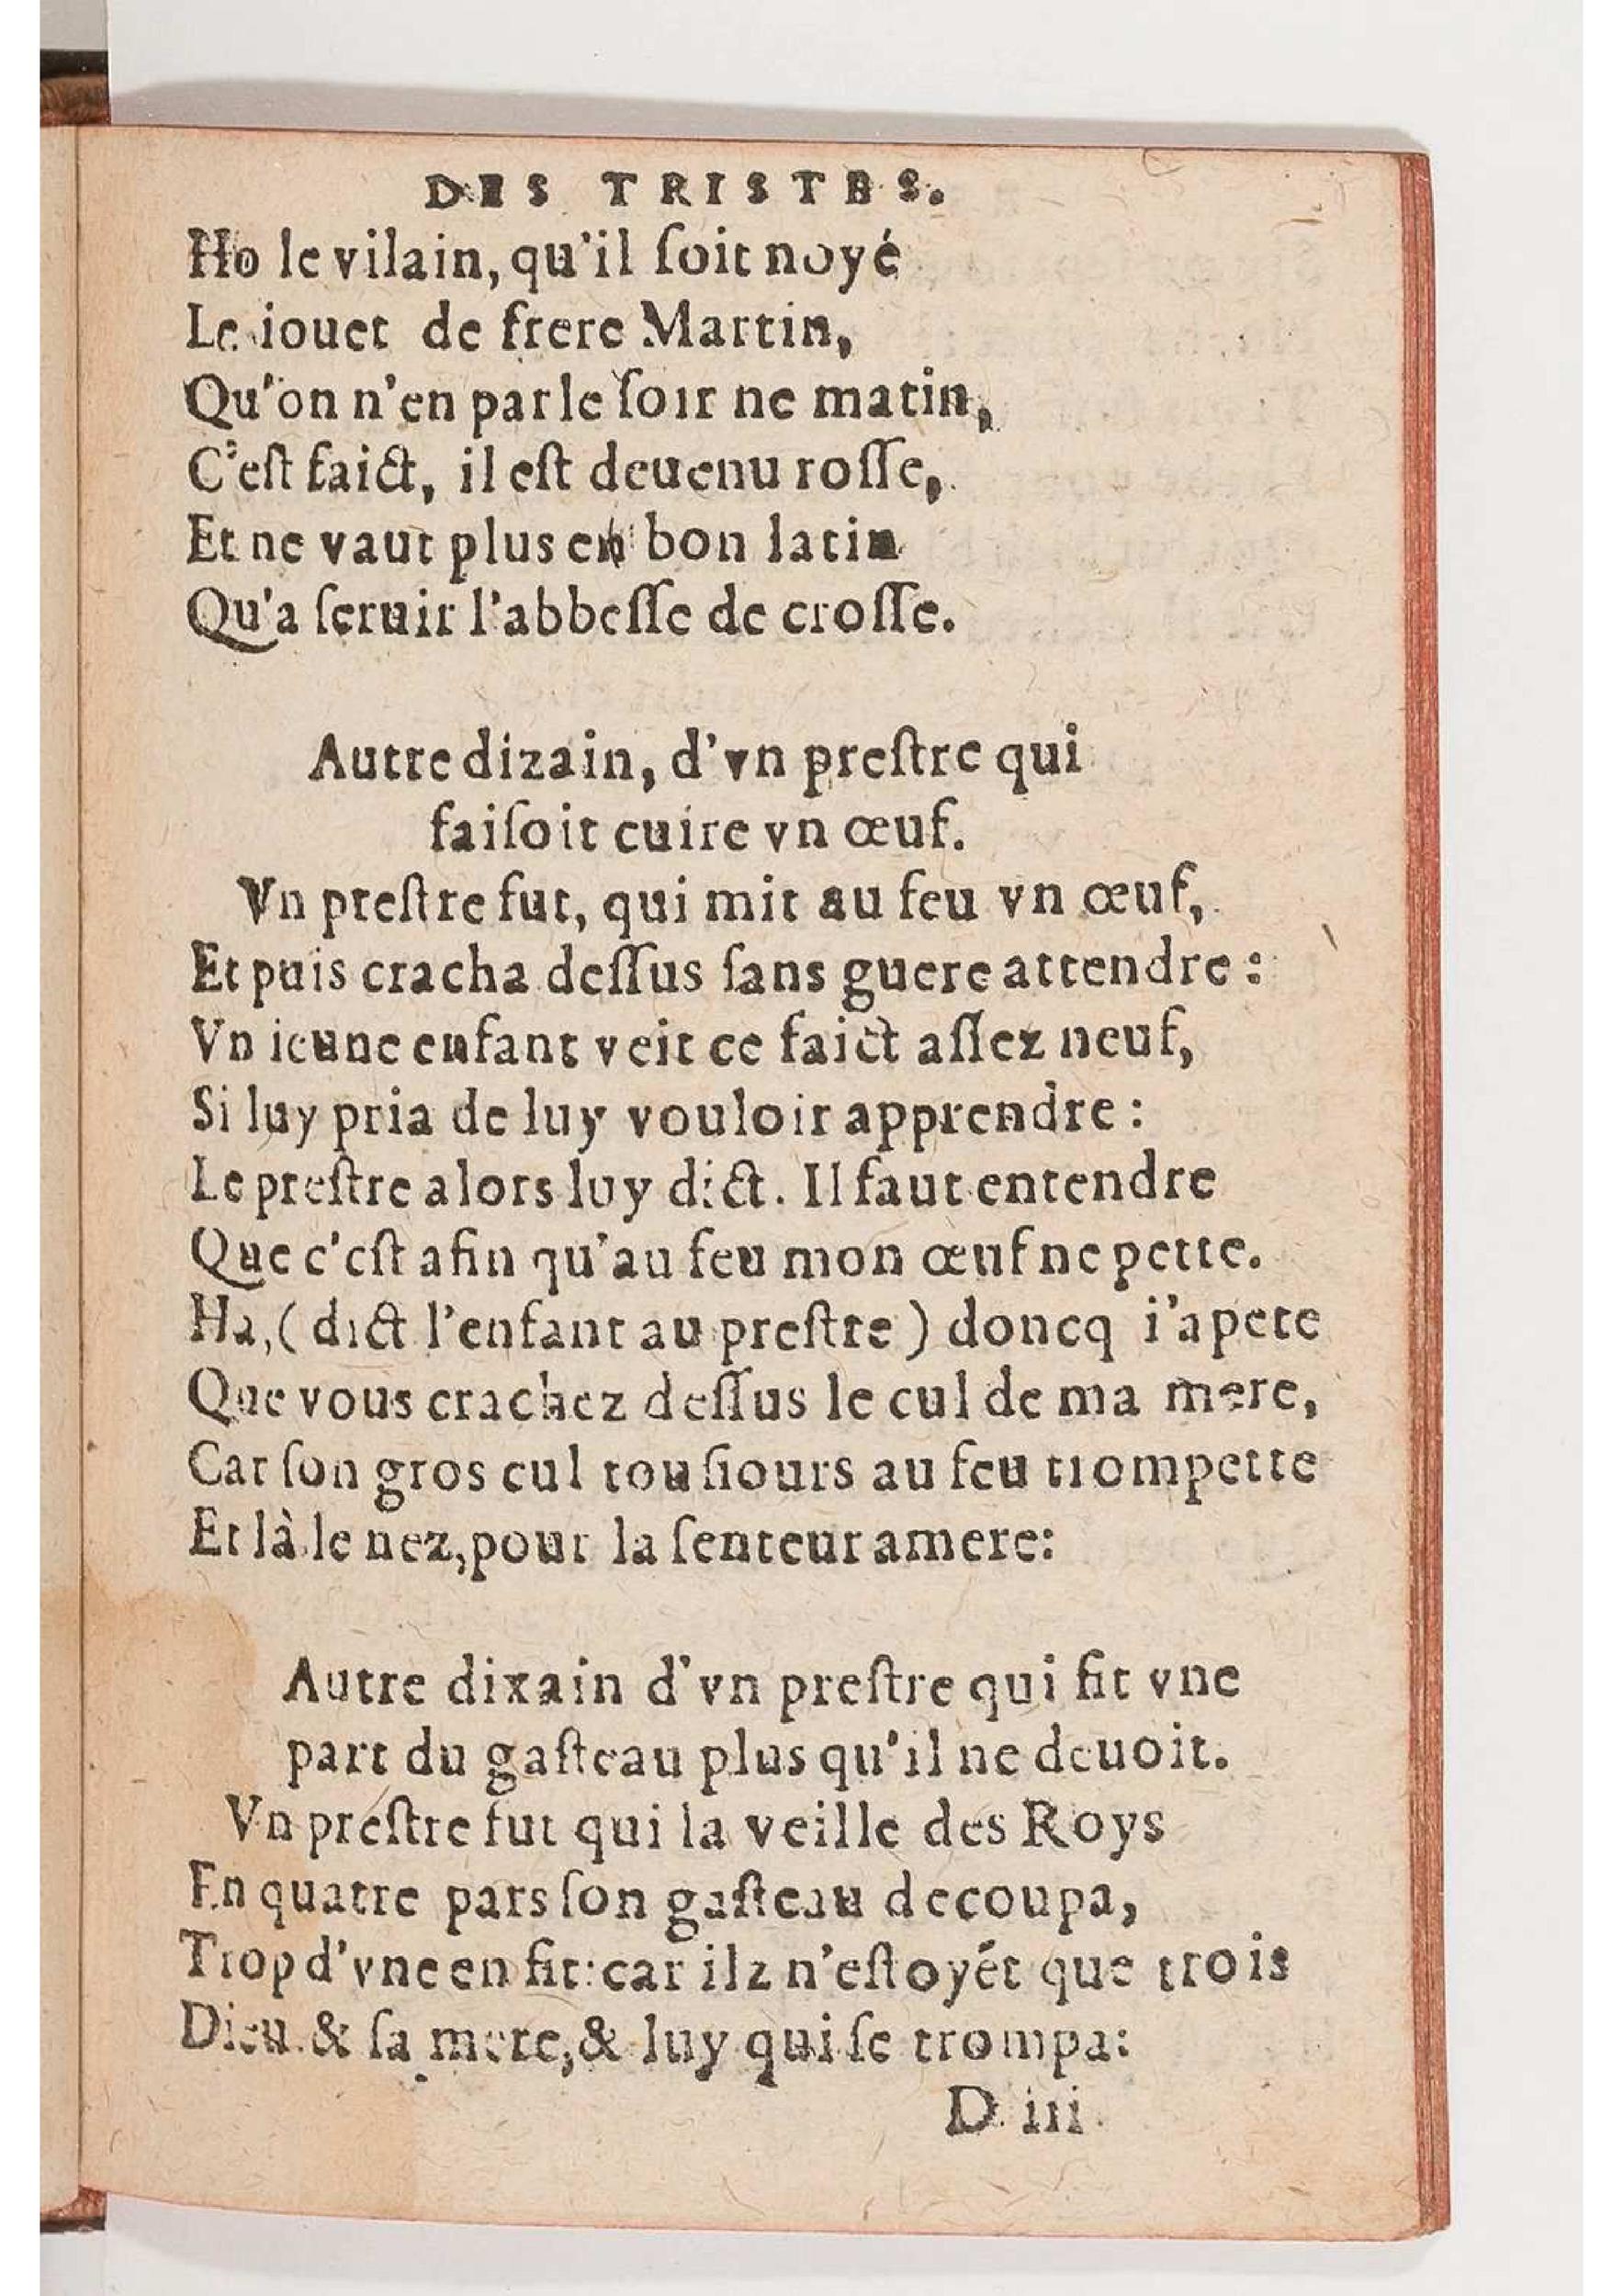 DES TRISTES.
Ho le vilain, qu'il ſoit noyé
Le iouet de frere Martin,
Qu'on n'en parle ſoir ne matin,
C'eſt faict, il eſt deuenu roſſe,
Et ne vaut plus en bon latin
Qu'a ſeruir l'abbeſſe de croſſe.
Autre dizain, d'vn preſtre qui
faiſoit cuire vn œuf.
Vn preſtre fut, qui mit au feu vn œuf,
Et puis cracha deſſus ſans guere attendre:
Vn ieune enfant veit ce faict aſſez neuf,
Si luy pria de luy vouloir apprendre:
Le preſtre alors luy dict. Il faut entendre
Que c'eſt afin qu'au feu mon œuf ne pette.
Ha, (dict l'enfant au preſtre) doncq i'apete
Que vous crachez deſſus le cul de ma mere,
Car ſon gros cul touſiours au feu trompette
Et là le nez, pour la ſenteur amere:
Autre dixain d'vn preſtre qui fit vne
part du gaſteau plus qu'il ne deuoit.
Vn preſtre fut qui la veille des Roys
En quatre pars ſon gaſteau decoupa,
Trop d'vne en fit: car ilz n'eſtoyét que trois
Dieu & ſa mere, & luy qui ſe trompa:
D iii